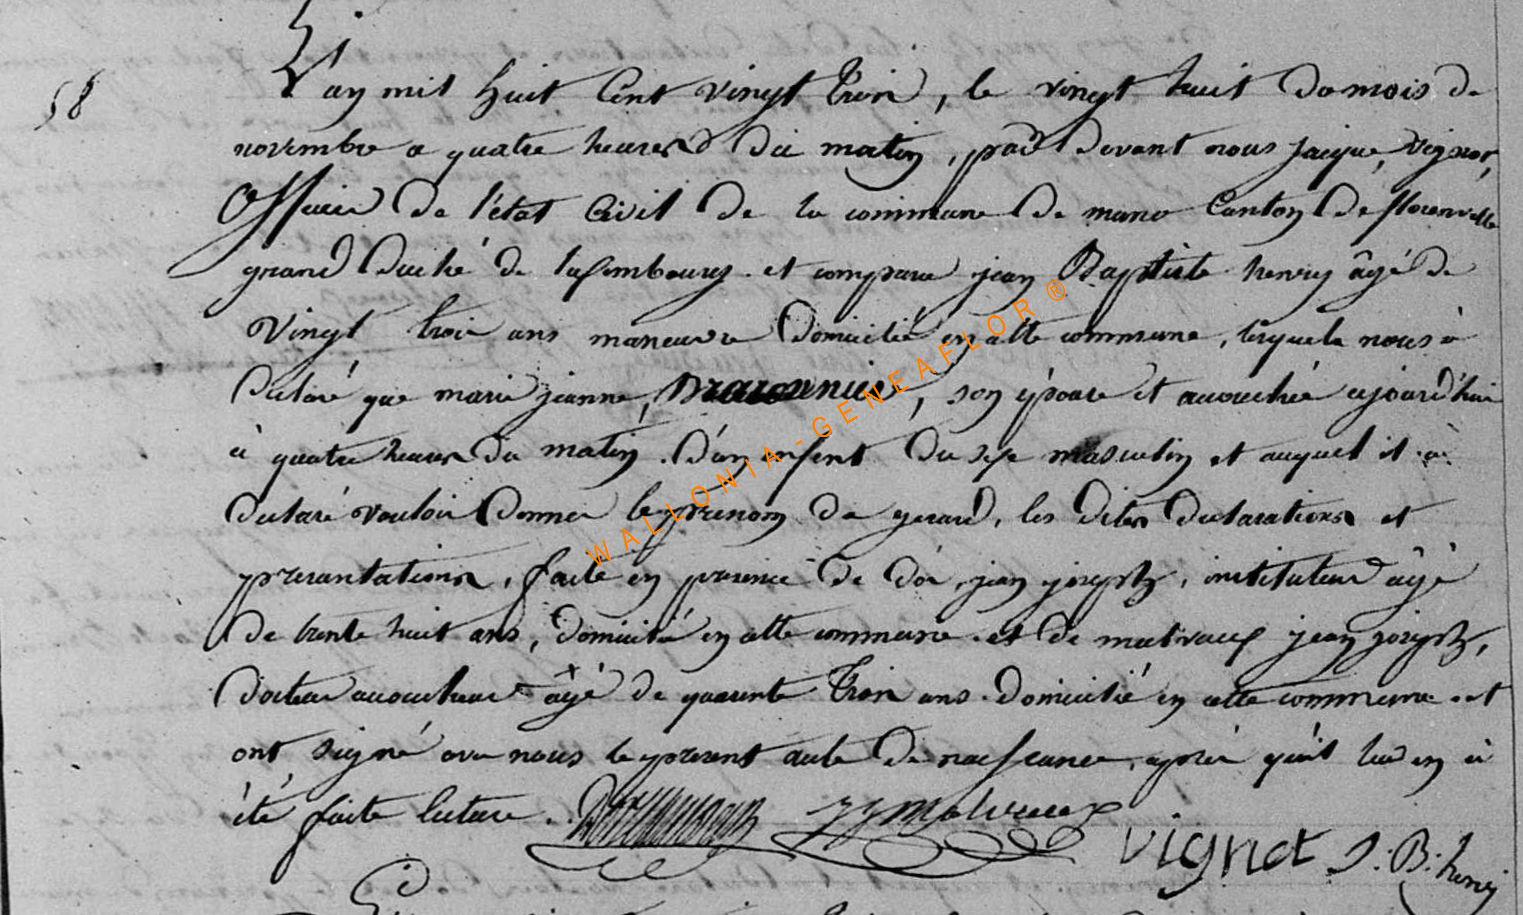 58
L'an mil huit Cent vingt trois, le vingt huit du mois de
novembre a quatre heures du matin, par devant nous jacque, vignot,
Officier de l'état Civil de la commune de muno Canton de florenville
grand Duché de luxembourg. et comparu jean Baptiste henry âgé de
Vingt trois ans maneuvre Domicilié en cette commune, lequel nous à
Declaré que marie jeanne, son épouse et accouchée ajourd'hui
à quatre heures du matin. D'un enfent Du sexe masculin et auquel il à
declaré vouloir Donner le prenom de gerard, les dites declarations et
presantations, faite en presence de jean joseph, instituteur âgé
de trente huit ans, domicilié en cette commune. et de malvaux jean joseph,
docteur accoucheur âgé de quarente trois ans. Domicilié en cette commune. et
ont signé avec nous le present acte de naissance, après qu'il leur en à
été faite lecture.
JJ Malvaux
vignot J: B: henry
WALLONIA-GENEAFLOR®